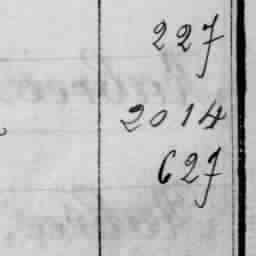 227
2014
627